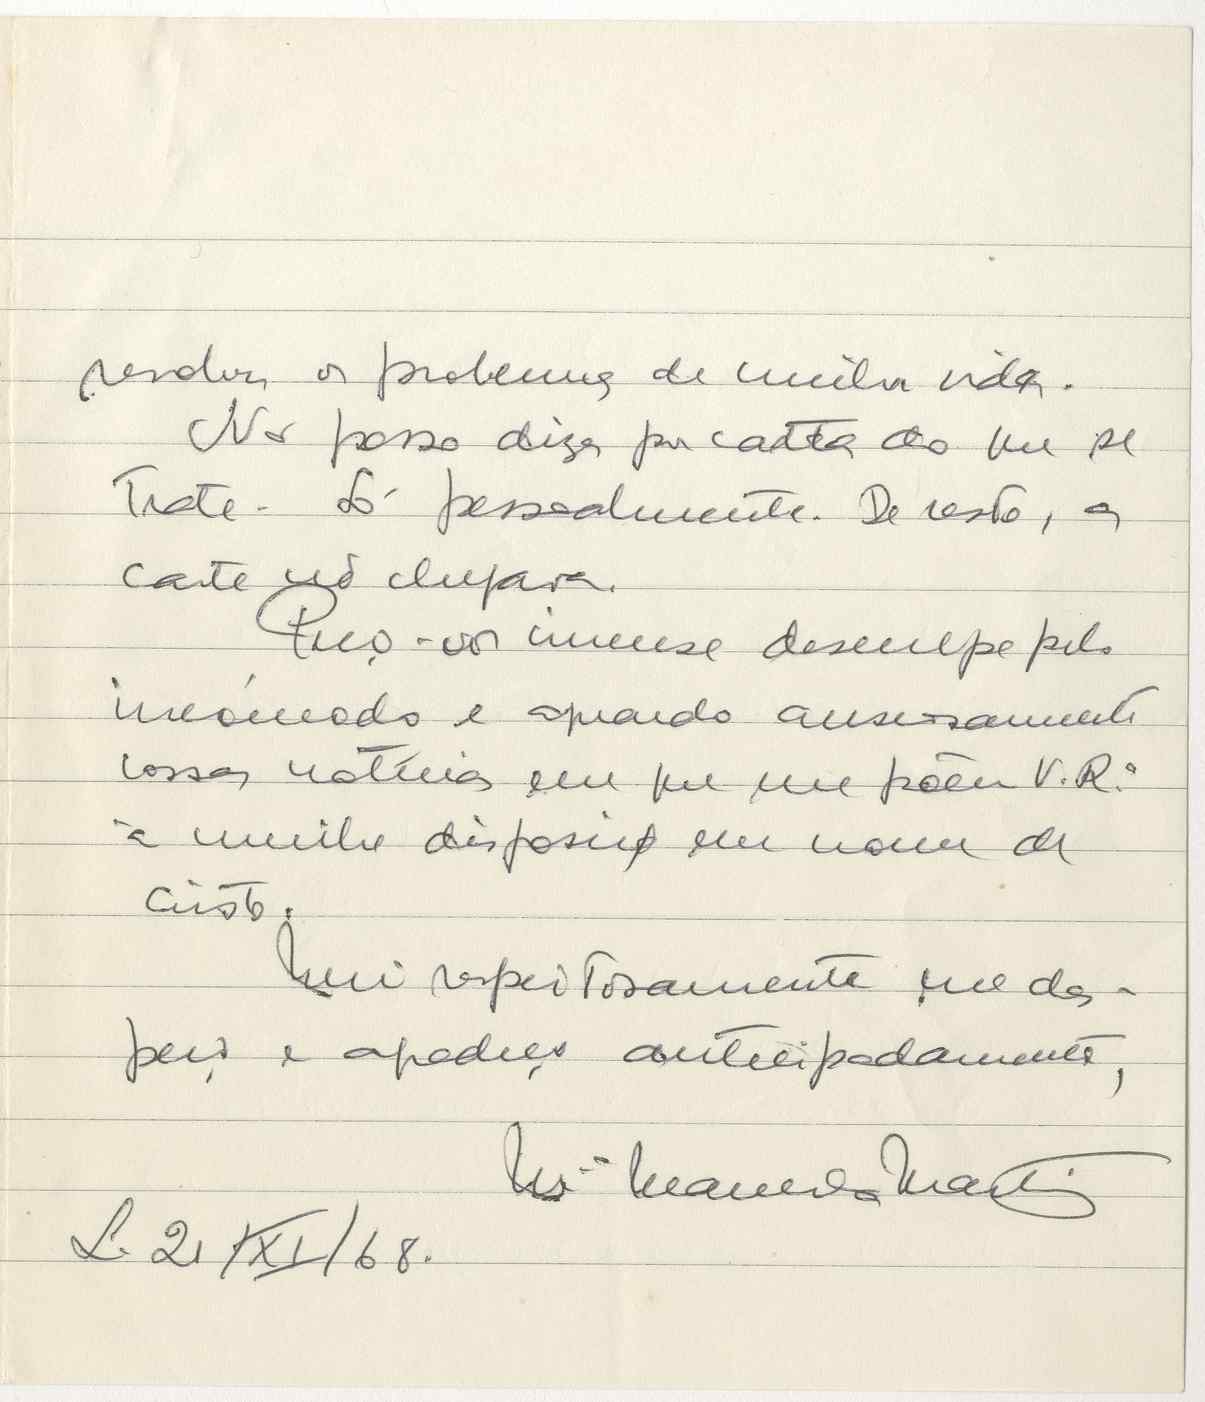 resolver os problemas da minha vida.
Não posso dizer por carta do que se
trata. Só pessoalmente. De resto, a
carta não chegava.
Peço-vos imensa desculpa pelo
incómodo e aguardo ansiosamente
vossas notícias em que me põem V. R.ª
à minha disposição em nome de
Cristo.
Mui respeitosamente me des-
peço e agradeço antecipadamente,
Mª Manuela Martins
L. 21/XI/68.